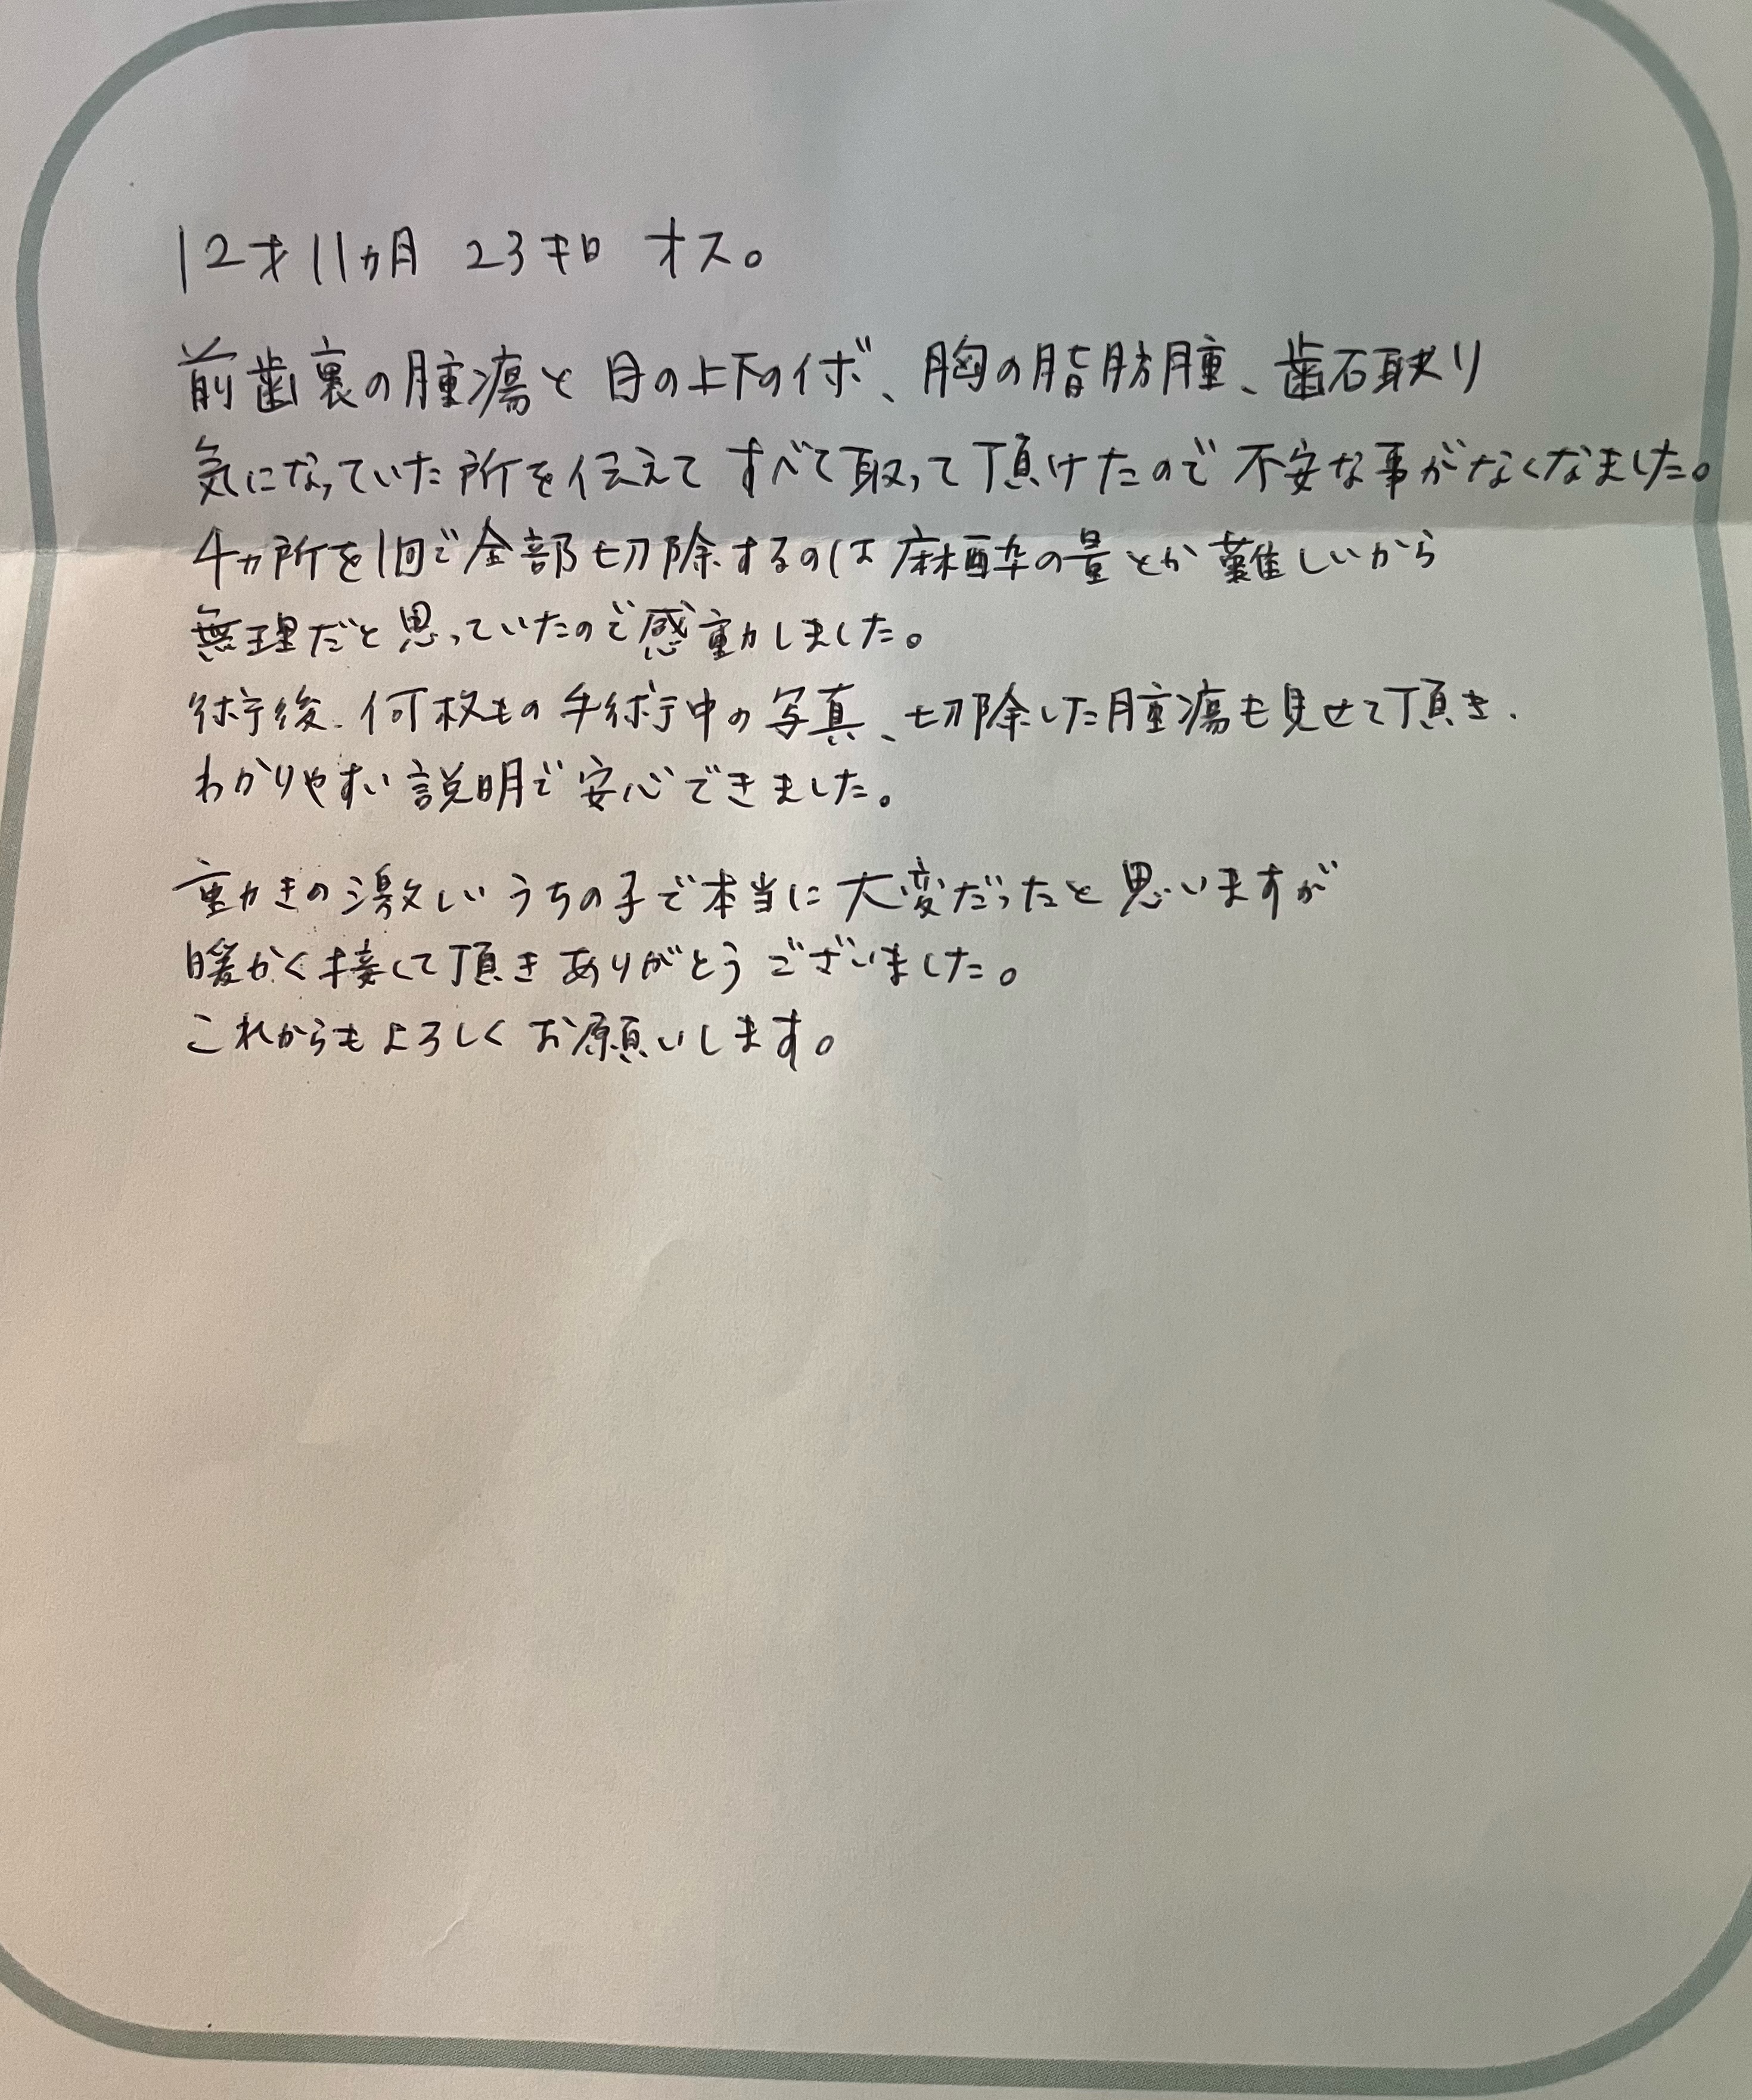 12才11ヵ月 23キロ オス。
前歯裏の腫瘍と目の上下のイボ、胸の脂肪腫、歯石取り
気になっていた所を伝えてすべて取って頂けたので不安な事がなくなました。
4ヵ所を1回で全部切除するのは麻酔の量とか難しいから
無理だと思っていたので感動しました。
術後、何枚もの手術中の写真、切除した腫瘍も見せて頂き、
わかりやすい説明で安心できました。
動きの激しいうちの子で本当に大変だったと思いますが
暖かく接して頂きありがとうございました。
これからもよろしくお願いします。